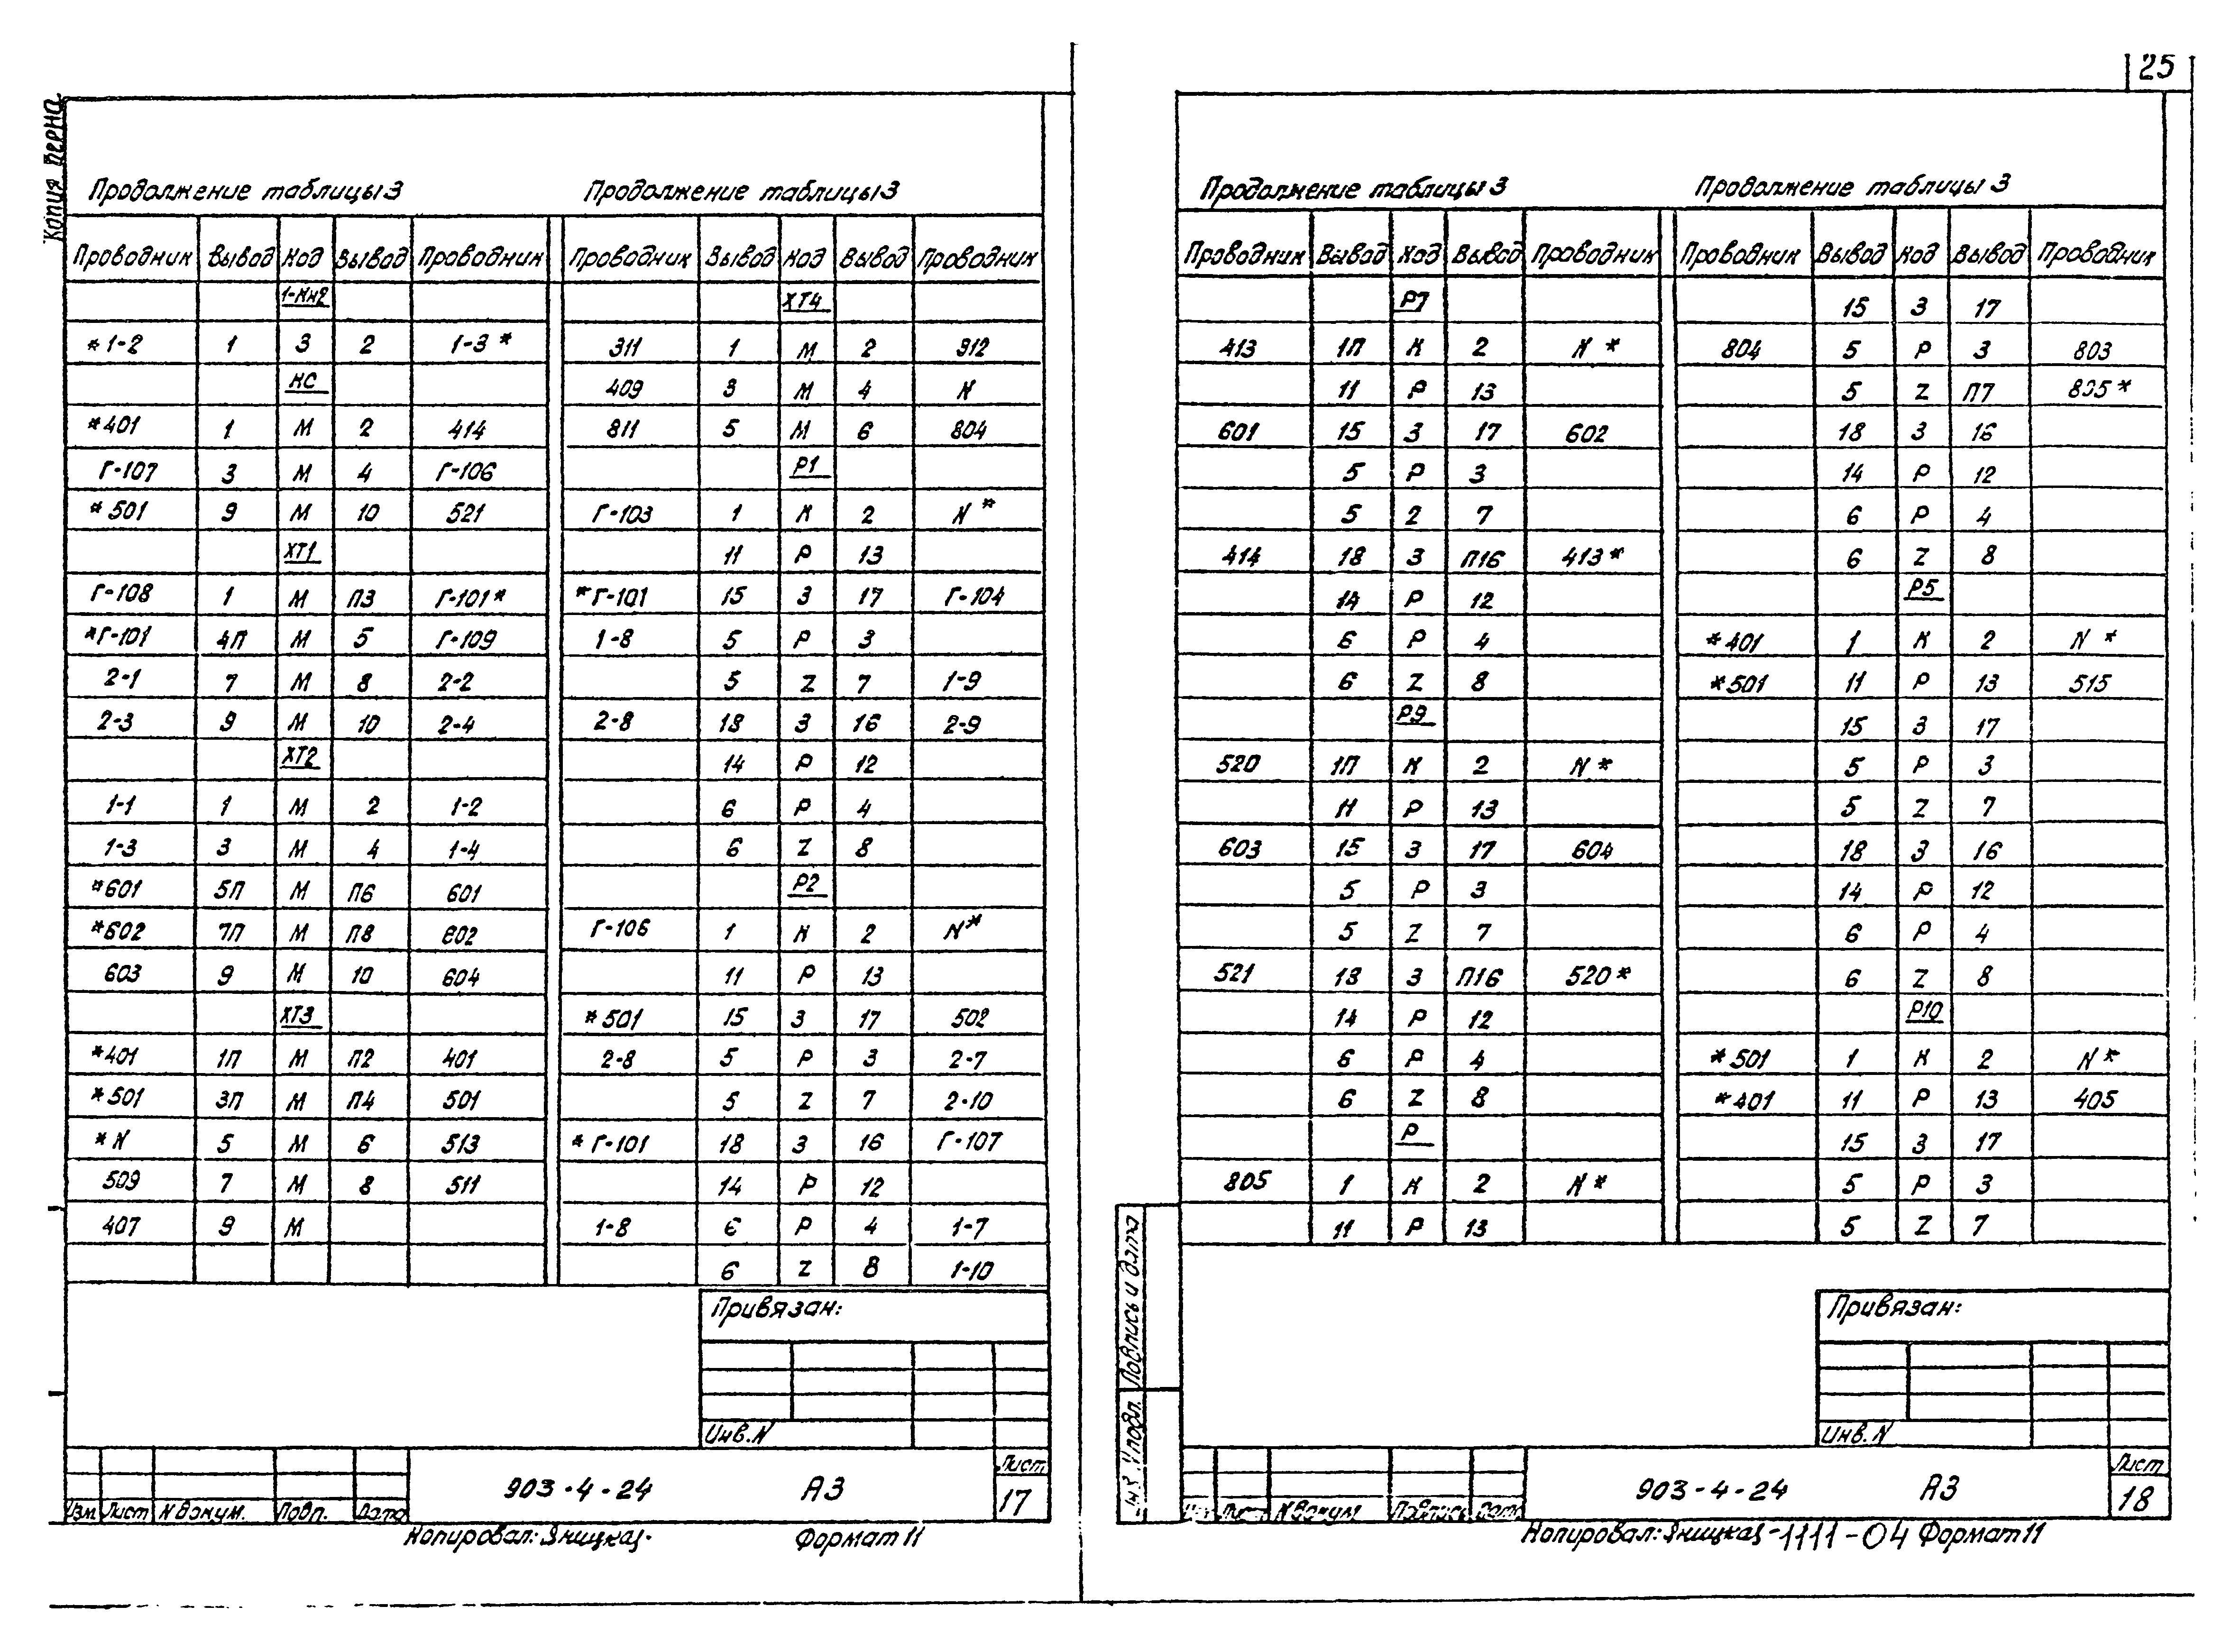 25
Копия верна
Продолжение таблицы 3
Проводник Вывод Код Вывод Проводник
1-Кн2
*1-2 1 З 2 1-3*
НС
*401 1 М 2 414
Г-107 3 М 4 Г-106
*501 9 М 10 521
ХТ1
Г-108 1 М П3 Г-101*
*Г-101 4П М 5 Г-109
2-1 7 М 8 2-2
2-3 9 М 10 2-4
ХТ2
1-1 1 М 2 1-2
1-3 3 М 4 1-4
*601 5П М П6 601
*602 7П М П8 602
603 9 М 10 604
ХТ3
*401 1П М П2 401
*501 3П М П4 501
*N 5 М 6 513
509 7 М 8 511
407 9 М
Продолжение таблицы 3
Проводник Вывод Код Вывод Проводник
ХТ4
311 1 М 2 312
409 3 М 4 N
811 5 М 6 804
Р1
Г-103 1 К 2 N*
11 Р 13
*Г-101 15 З 17 Г-104
1-8 5 Р 3
5 Z 7 1-9
2-8 18 З 16 2-9
14 Р 12
6 Р 4
6 Z 8
Р2
Г-106 1 К 2 N*
11 Р 13
*501 15 З 17 502
2-8 5 Р 3 2-7
5 Z 7 2-10
*Г-101 18 З 16 Г-107
14 Р 12
1-8 6 Р 4 1-7
6 Z 8 1-10
Привязан:
Инв.N
Изм Лист N докум. Подп. Дата
903-4-24 А3
Лист
17
Копировал: Формат 11
Продолжение таблицы 3
Проводник Вывод Код Вывод Проводник
Р7
413 1П К 2 N*
11 Р 13
601 15 З 17 602
5 Р 3
5 2 7
414 18 З П16 413*
14 Р 12
6 Р 4
6 Z 8
Р9
520 1П К 2 N*
11 Р 13
603 15 З 17 604
5 Р 3
5 Z 7
521 18 З П16 520*
14 Р 12
6 Р 4
6 Z 8
Р
805 1 К 2 N*
11 Р 13
Продолжение таблицы 3
Проводник Вывод Код Вывод Проводник
15 З 17
804 5 Р 3 803
5 Z П7 805*
18 З 16
14 Р 12
6 Р 4
6 Z 8
Р5
*401 1 К 2 N*
*501 11 Р 13 515
15 З 17
5 Р 3
5 Z 7
18 З 16
14 Р 12
6 Р 4
6 Z 8
Р10
*501 1 К 2 N*
*401 11 Р 13 405
15 З 17
5 Р 3
5 Z 7
Подпись и дата
Привязан:
Инв.N
Лист N докум Подпись Дата
903-4-24 А3
Лист
18
Копировал: -1111-04 Формат 11